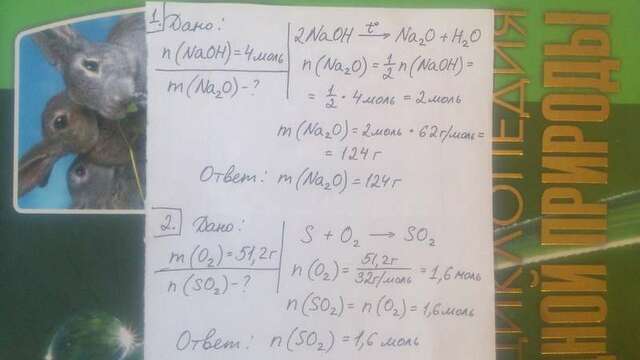 1. Дано:
n(NaOH)=4моль
m(Na₂O)-?
2NaOH t° → Na₂O + H₂O
n(Na₂O) = 1/2 n(NaOH) =
= 1/2 · 4моль = 2моль
m(Na₂O) = 2моль · 62г/моль =
= 124г
Ответ: m(Na₂O) = 124г
2. Дано:
m(O₂)=51,2г
n(SO₂)-?
S + O₂ → SO₂
n(O₂) = 51,2г / 32г/моль = 1,6моль
n(SO₂) = n(O₂) = 1,6моль
Ответ: n(SO₂) = 1,6 моль
ПРИРОДЫ